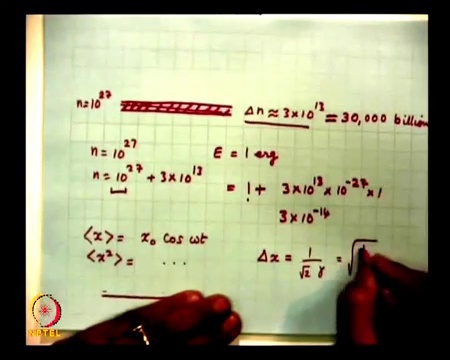 n=10^27 Δn ≈ 3×10^13 = 30,000 billion
n = 10^27 E = 1 erg
n = 10^27 + 3×10^13 = 1 + 3×10^13 × 10^-27 × 1
3×10^-14
⟨x⟩ = x₀ cos ωt
⟨x²⟩ = ... Δx = 1/(√2 γ) = √
NPTEL